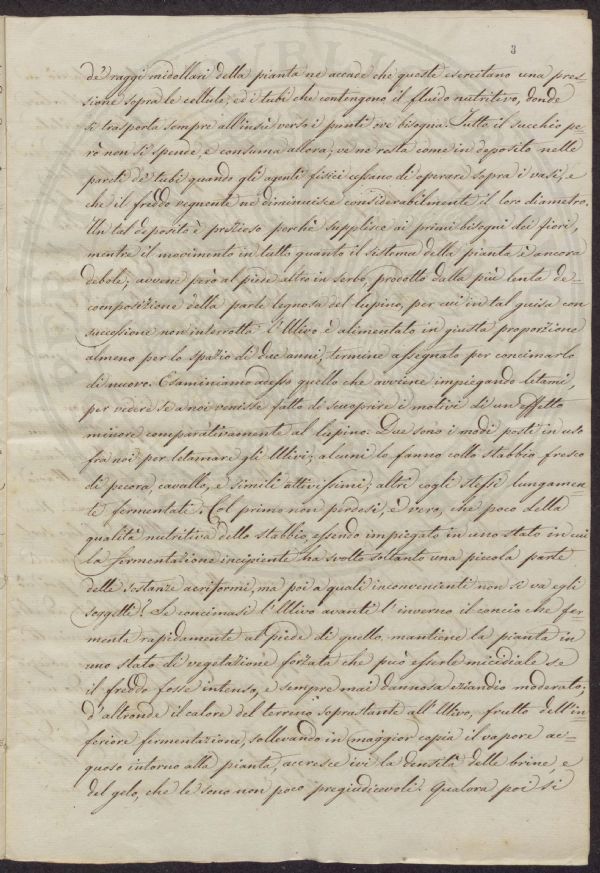 3
de' raggi midollari della pianta ne accade che queste esercitano una pres=
sione sopra le cellule, ed i tubi che contengono il fluido nutritivo, donde
si trasporta sempre all'insù verso i punti ove bisogna. Tutto il succhio pe=
rò non si spende, e consuma allora; ve ne resta come in deposito nelle
pareti de' tubi quando gli agenti fisici cessano di operare sopra i vasi, e
che il freddo vegnente ne diminuisce considerabilmente il loro diametro.
Un tal deposito è prezioso perchè supplisce ai primi bisogni dei fiori,
mentre il movimento in tutto quanto il sistema della pianta è ancora
debole; avvene però al piede altro in serbo, prodotto dalla più lenta de=
composizione della parte legnosa del lupino, per cui in tal guisa con
successione non interrotta l'Ulivo è alimentato in giusta proporzione
almeno per lo spazio di due anni, termine assegnato per concimarlo
di nuovo. Esaminiamo adesso quello che avviene impiegando letami,
per vedere se a noi venisse fatto di scuoprire i motivi di un effetto
minore comparativamente al lupino. Due sono i modi posti in uso
fra noi per letamare gli Ulivi; alcuni lo fanno collo stabbio fresco
di pecora, cavallo, e simili attivissimi; altri cogli stessi lungamen=
te fermentati. Col primo non perdesi, è vero, che poco della
qualità nutritiva dello stabbio, essendo impiegato in uno stato in cui
la fermentazione incipiente ha svolto soltanto una piccola parte
delle sostanze aeriformi, ma poi a quali inconvenienti non si va egli
soggetti? Se concimasi l'Ulivo avanti l'inverno il concio che fer=
menta rapidamente al piede di quello, mantiene la pianta in
uno stato di vegetazione forzata che può esserle micidiale se
il freddo fosse intenso, e sempre mai dannosa eziandio moderato;
d'altronde il calore del terreno soprastante all'Ulivo, frutto dell'in=
feriore fermentazione, sollevando in maggior copia il vapore ac=
quoso intorno alla pianta, accresce ivi la densità delle brine, e
del gelo, che le sono non poco pregiudicevoli. Qualora poi si